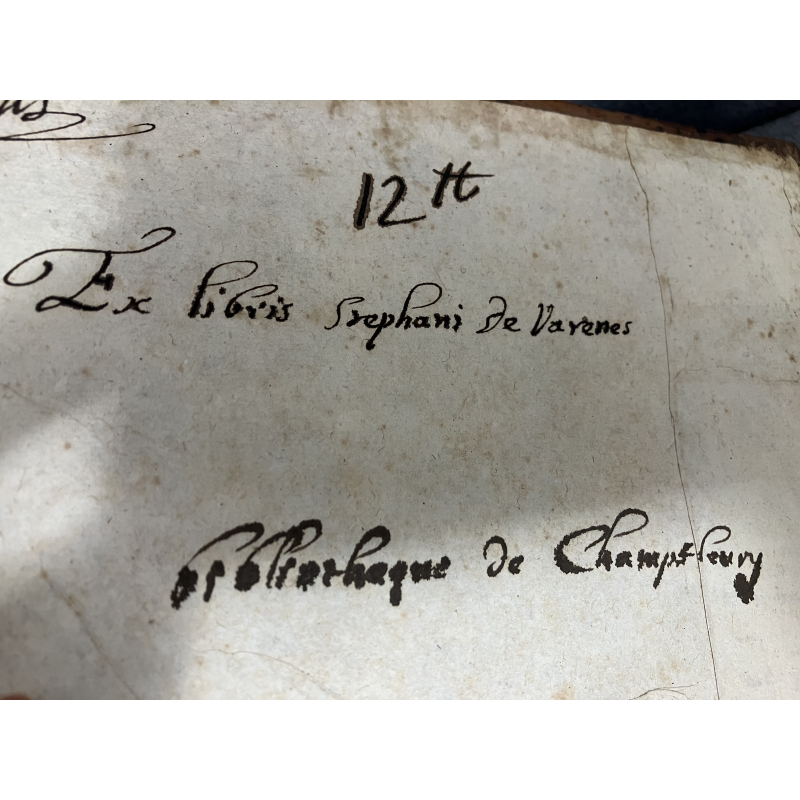 12 ₶
Ex libris Stephani de Varenes
bibliothaque de Champfleury